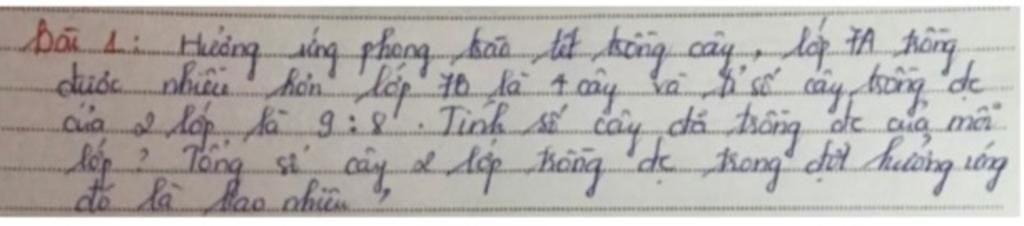 Bài 1: Hưởng ứng phong trào tết trồng cây, lớp 7A trồng
được nhiều hơn lớp 7B là 4 cây và tỉ số cây trồng đc
của 2 lớp là 9:8. Tính số cây đã trồng đc của mỗi
lớp? Tổng số cây 2 lớp trồng đc trong đợt hưởng ứng
đó là bao nhiêu?